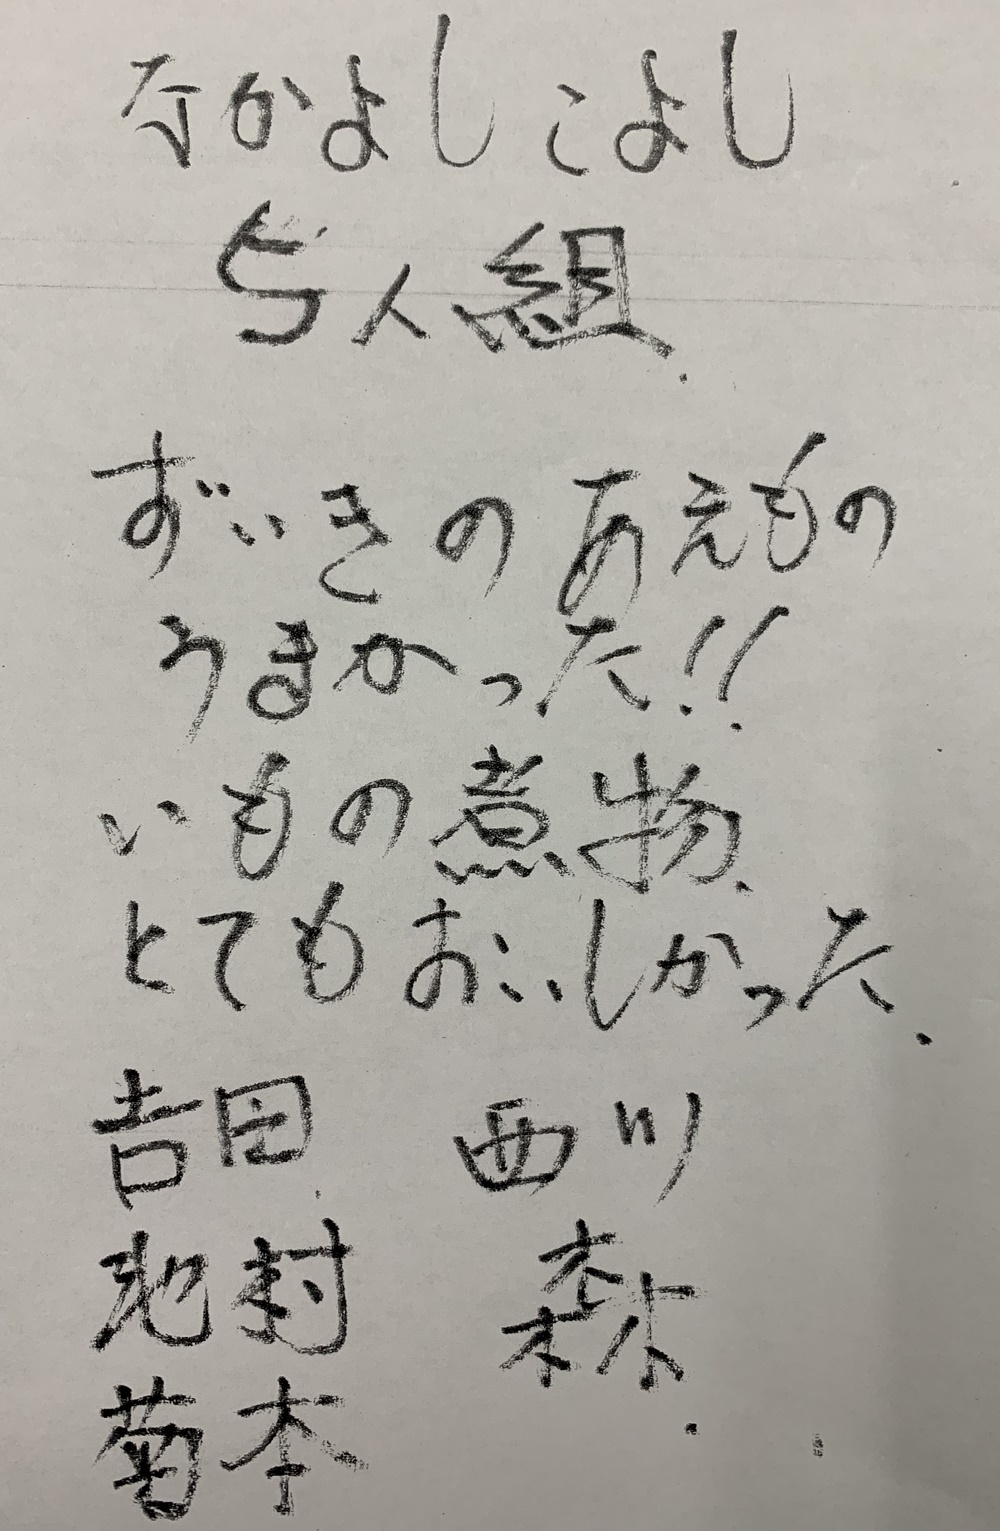 なかよしこよし
5人組.
ずいきのあえもの
うまかった!!
いもの煮物.
とてもおいしかった.
吉田 西川
村 森.
菊本